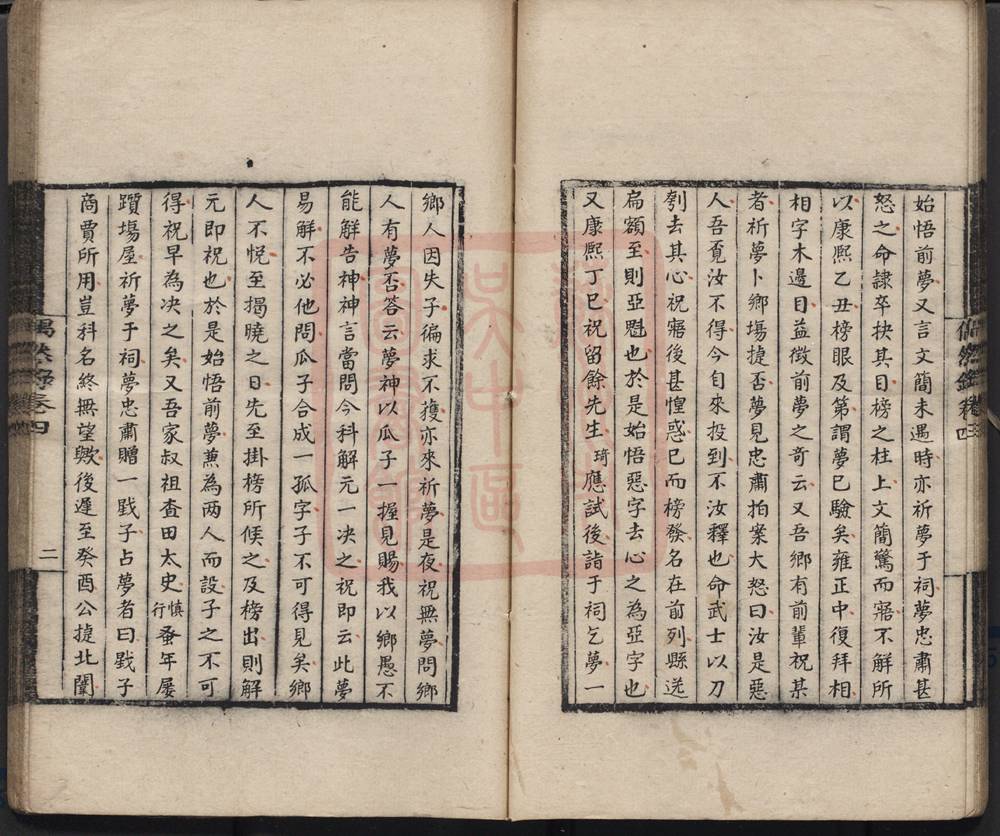 始悟前夢又言文簡未遇時亦祈夢于祠夢忠肅甚
怒之命隷卒抉其目榜之柱上文簡驚而寤不解所
以康熙乙丑榜眼及第謂夢已驗矣雍正中復拜相
相字木邊目益徵前夢之奇云又吾鄉有前輩祝某
者祈夢卜鄉塲捷否夢見忠肅拍案大怒曰汝是惡
人吾覔汝不得今自來投到不汝釋也命武士以刀
刳去其心祝寤後甚惶惑已而榜發名在前列縣送
扁額至則亞魁也於是始悟惡字去心之為亞字也
又康熙丁巳祝留餘先生琦應試後詣于祠乞夢一
鄉人因失子徧求不獲亦來祈夢是夜祝無夢問鄉
人有夢否答云夢神以瓜子一握見賜我以鄉愚不
能解告神神言當問今科解元一决之祝即云此夢
易解不必他問瓜子合成一孤字子不可得見矣鄉
人不悦至揭曉之日先至掛榜所候之及榜出則解
元即祝也於是始悟前夢蕙為两人而設子之不可
得祝早為决之矣又吾家叔祖查田太史慎行蚤年屢
躓塲屋祈夢于祠夢忠肅贈一戥子占夢者曰戥子
商賈所用豈科名終無望歟後遲至癸酉公捷北闈
偶然錄卷四
二